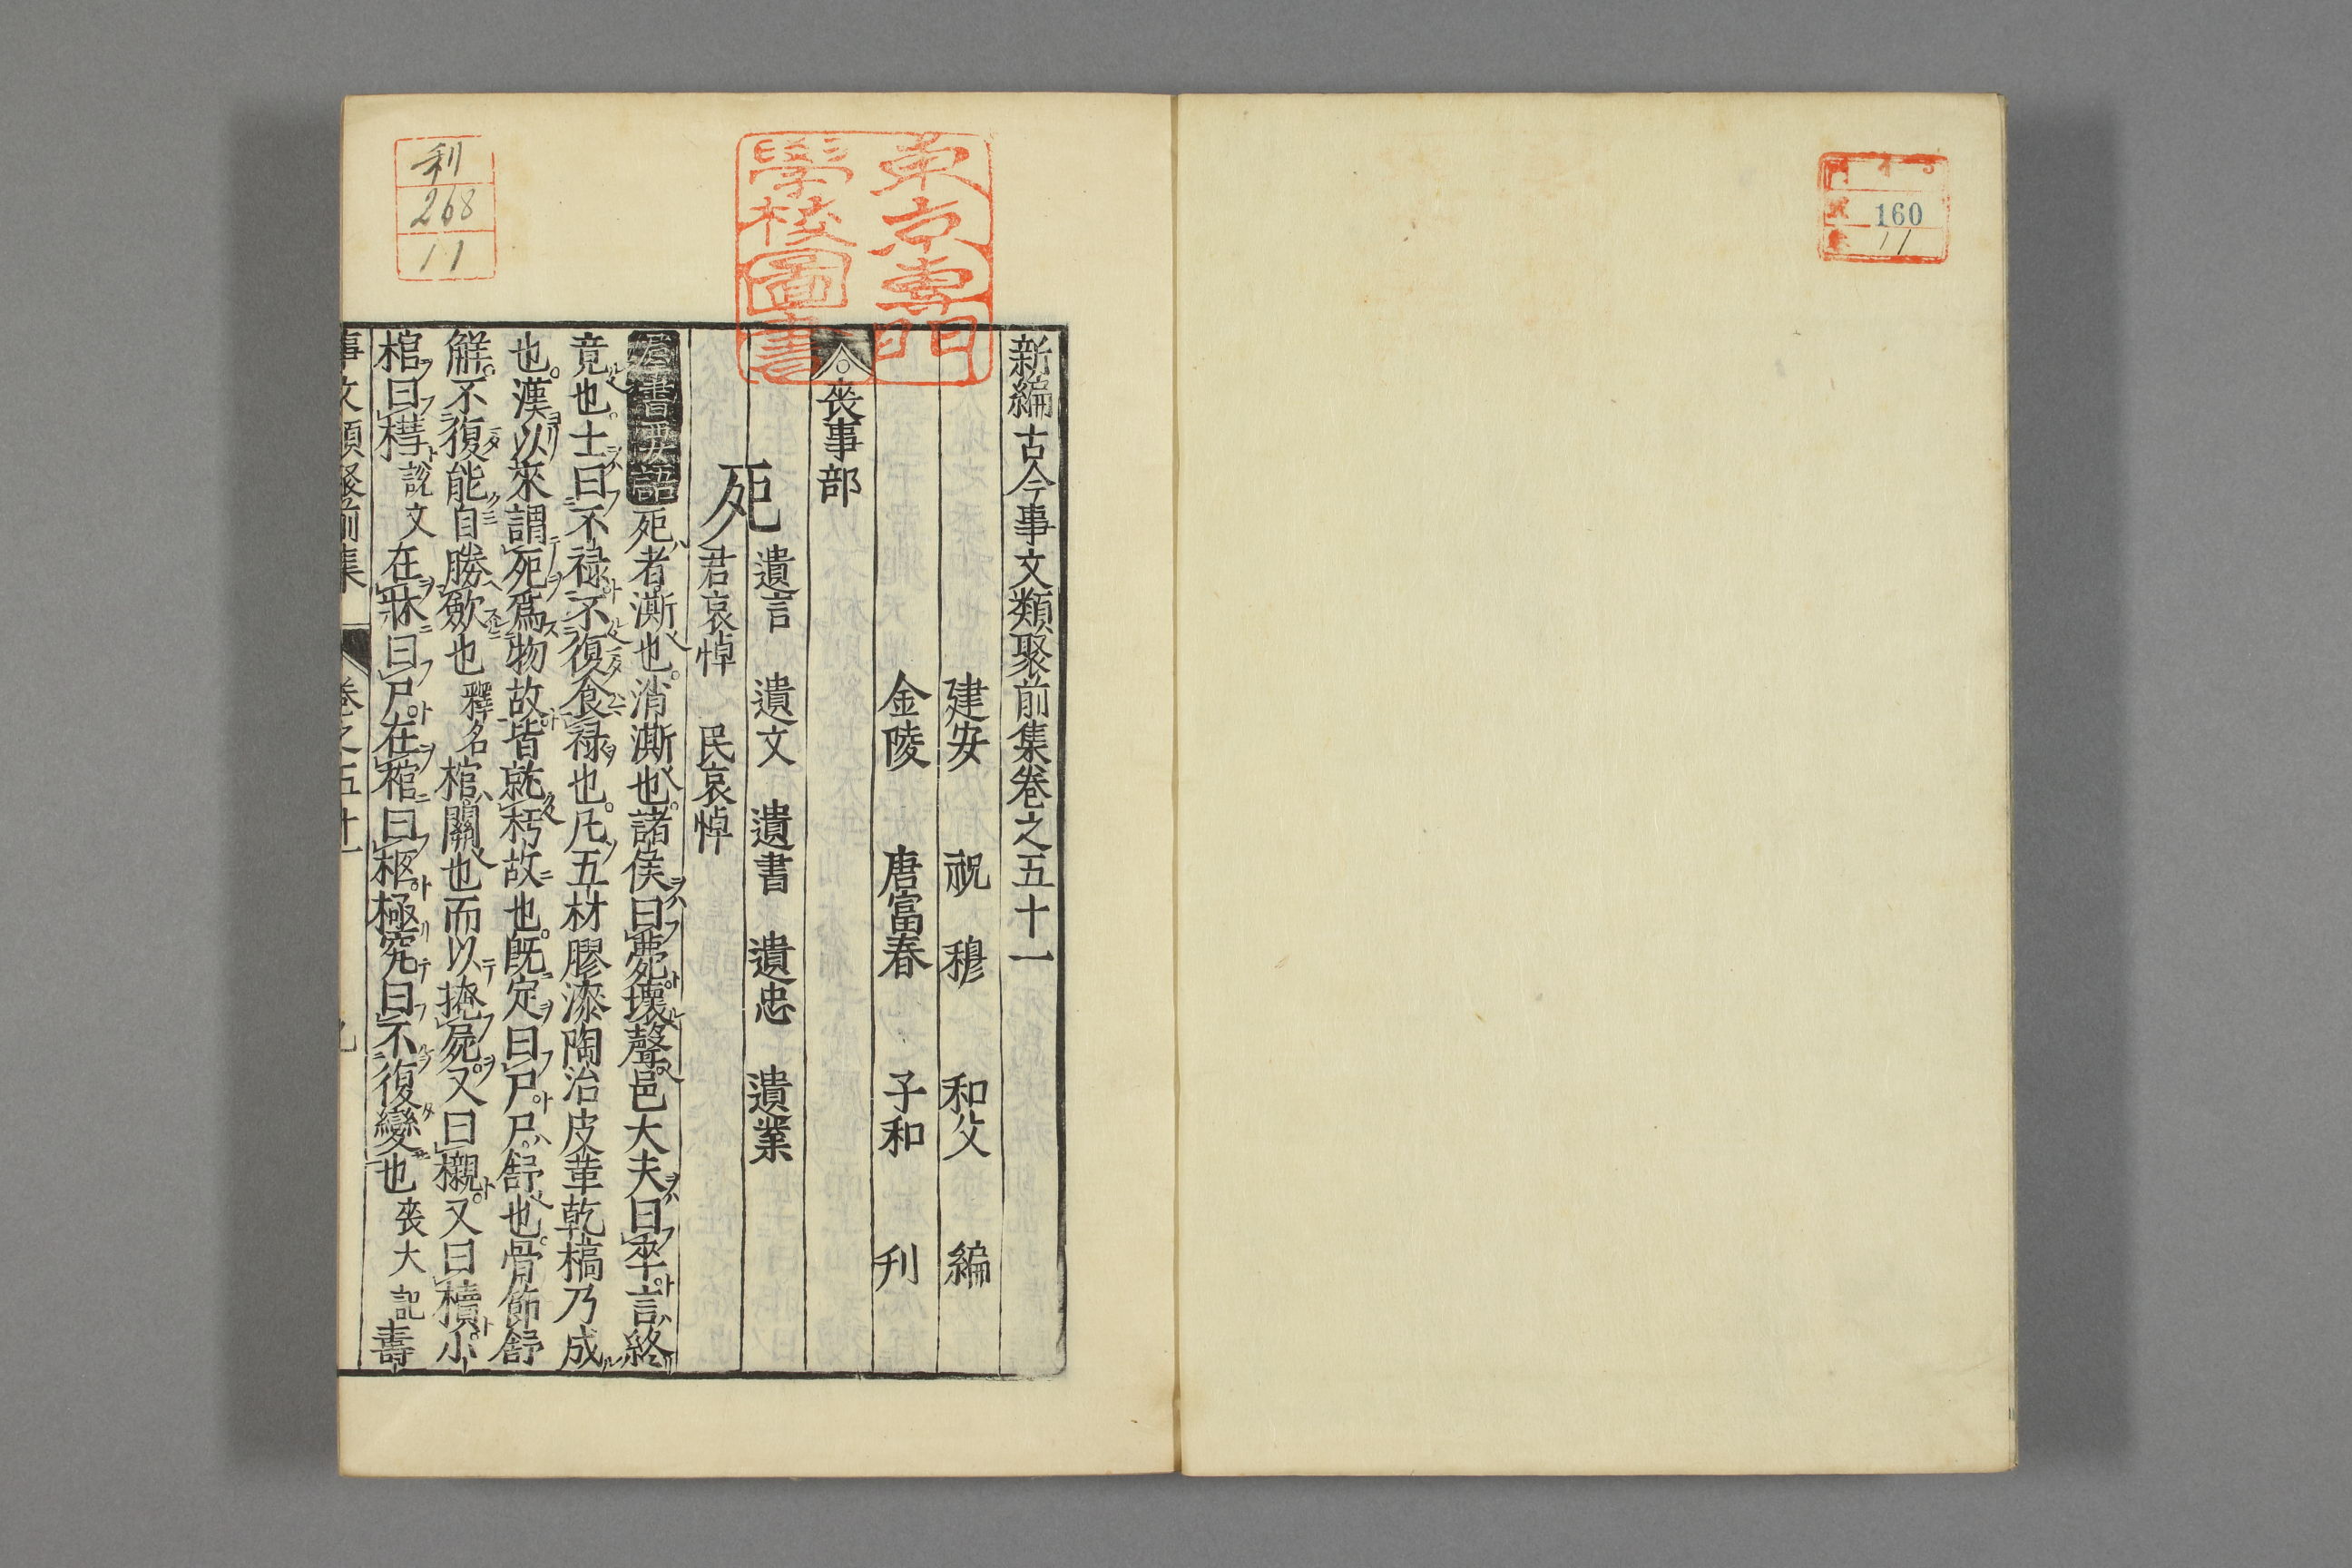 160
11
東京專門
學校圖書
利
268
11
新編古今事文類聚前集卷之五十一
建安 祝 穆 和父 編
金陵 唐富春 子和 刋
喪事部
死
遺言 遺文 遺書 遺忠 遺業
君哀悼 民哀悼
羣書要語死者澌也消澌也諸侯曰薨壞聲也大夫曰卒言終
竟也士曰不禄不復食禄也凡五材膠漆陶治皮革乾槁乃成
也漢以來謂死爲物故皆就朽故也既定曰尸尸舒也骨節舒
觧不復能自勝歛也釋名棺關也而以掩屍又曰櫬又曰櫝小
棺曰槥說文在牀曰尸在棺曰柩極究曰不復變也喪大記壽
事文類聚前集 卷之五十一